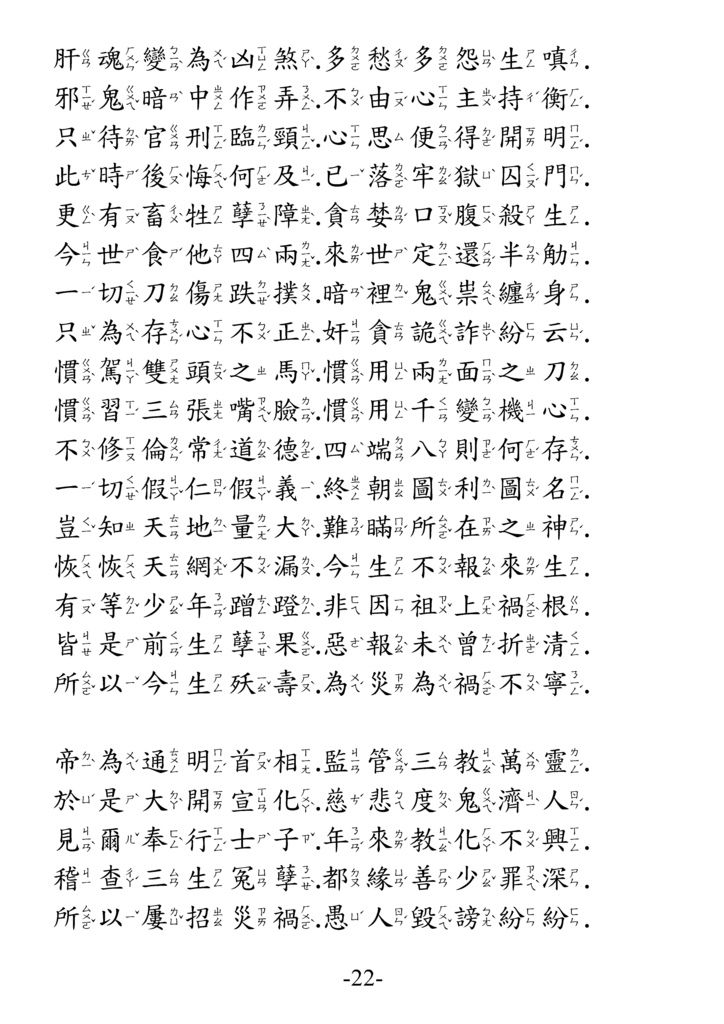 肝魂變為凶煞.多愁多怨生嗔.
邪鬼暗中作弄.不由心主持衡.
只待官刑臨頸.心思便得開明.
此時後悔何及.已落牢獄囚門.
更有畜牲孽障.貪婪口腹殺生.
今世食他四兩.來世定還半觔.
一切刀傷跌撲.暗裡鬼祟纏身.
只為存心不正.奸貪詭詐紛云.
慣駕雙頭之馬.慣用兩面之刀.
慣習三張嘴臉.慣用千變機心.
不修倫常道德.四端八則何存.
一切假仁假義.終朝圖利圖名.
豈知天地量大.難瞞所在之神.
恢恢天網不漏.今生不報來生.
有等少年蹭蹬.非因祖上禍根.
皆是前生孽果.惡報未曾折清.
所以今生殀壽.為災為禍不寧.
帝為通明首相.監管三教萬靈.
於是大開宣化.慈悲度鬼濟人.
見爾奉行士子.年來教化不興.
稽查三生冤孽.都緣善少罪深.
所以屢招災禍.愚人毀謗紛紛.
-22-